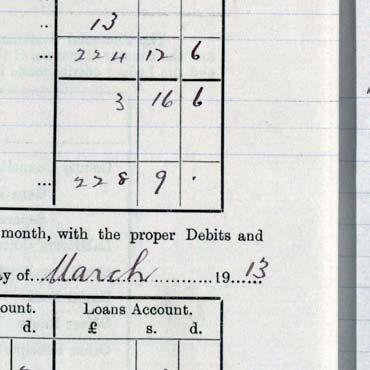 .. 13
... 224 12 6
3 16 6
... 228 9 .
month, with the proper Debits and
y of....March..............1913......
ount. Loans Account.
d. £ s. d.